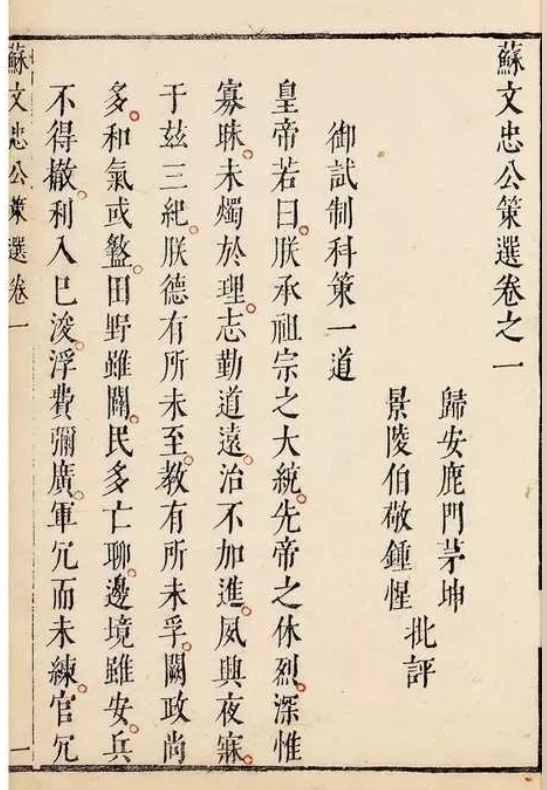 蘇文忠公策選卷之一
歸安鹿門茅坤
景陵伯敬鍾惺
批評
御試制科策一道
皇帝若曰。朕承祖宗之大統。先帝之休烈。深惟
寡昧。未燭於理。志勤道遠。治不加進。夙興夜寐。
于茲三紀。朕德有所未至。教有所未孚。闕政尚
多。和氣或盭。田野雖闢。民多亡聊。邊境雖安。兵
不得撤。利入巳浚。浮費彌廣。軍冗而未練。官冗
蘇文忠公策選卷一
一